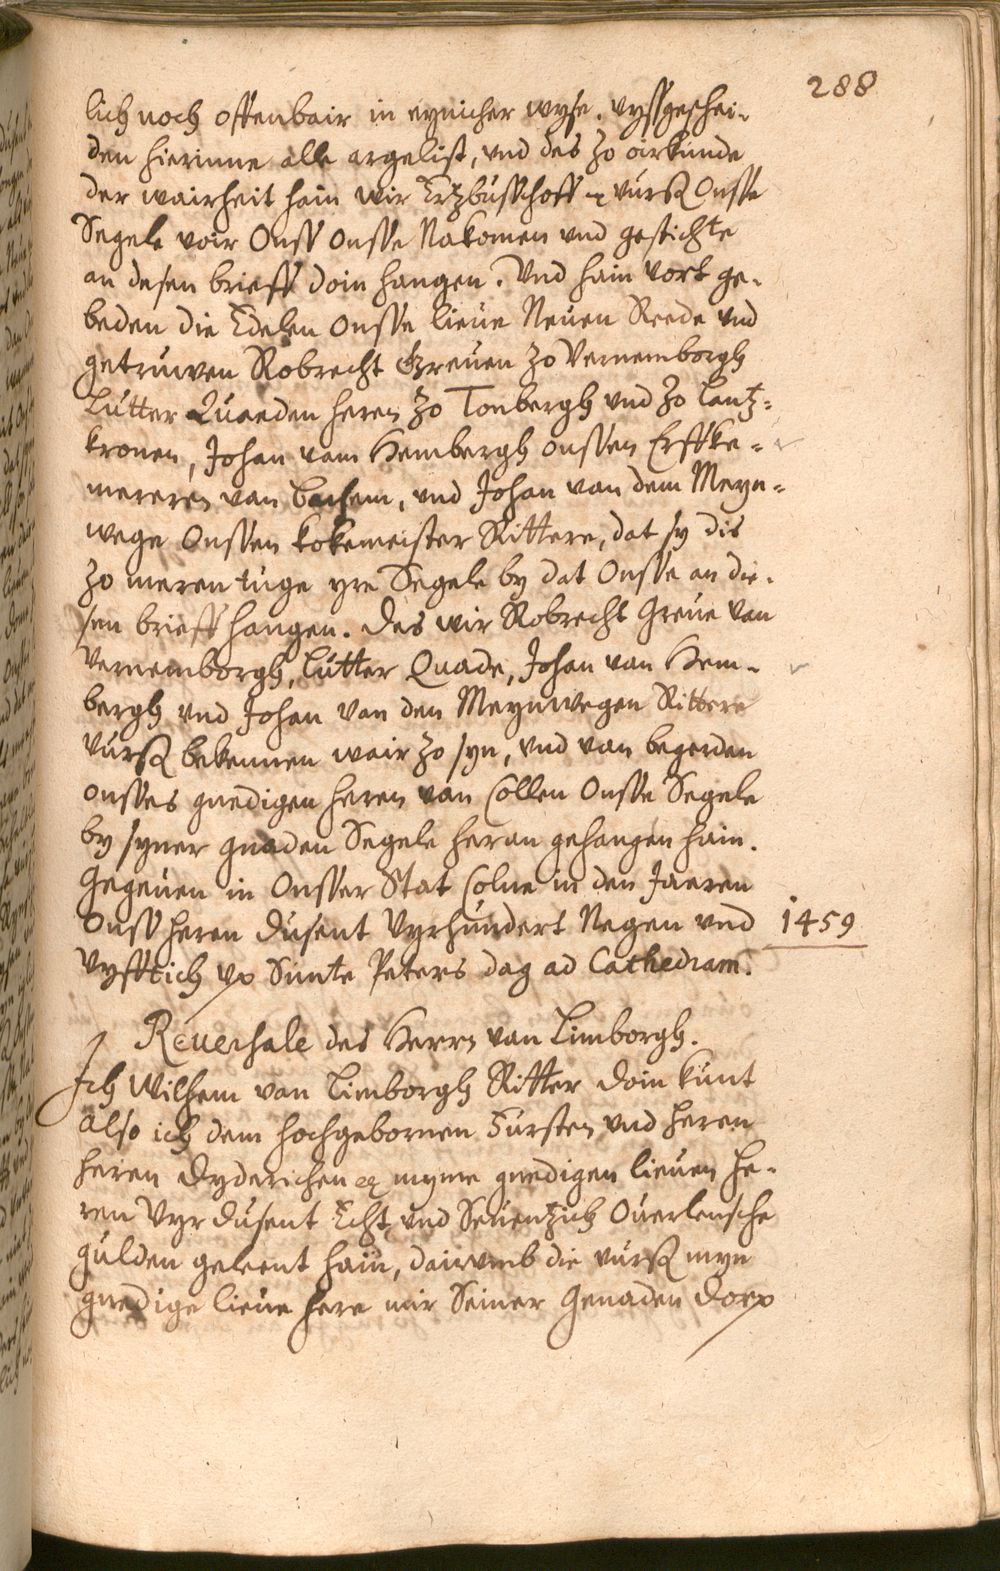 288
lich noch offenbair in eynicher wyse. vyssgeschei-
den hierinne alle argelist, vnd des zo oirkunde
der wairheit hain wir Ertzbusschoff vursß Onsse
Segele voir Onss Onsse Nakomen vnd gestichte
an desen brieff doin hangen. Vnd hain vort ge-
beden die Edelen Onsse lieue Neuen Reede vnd
getruwen Robrecht Greuen zo Vernemborgh
Lutter Quaeden heren zo Tonbergh vnd zo Lantz-
kronen, Johan vam Hembergh onssen Erffke-
mereren van Bachem, vnd Johan van dem Meyn-
wege Onssen kokemeister Rittere, dat sy dis
zo meren tuge yre Segele by dat Onsse an die-
sen brieff hangen. Des wir Robrecht Greue van
Vernemborgh, Lutter Quade, Johan van Hem-
bergh vnd Johan van den Meynwegen Rittere
vursß bekennen wair zo syn, vnd van begerden
onsses gnedigen heren van Collen Onsse Segele
by syner gnaden Segele heran gehangen hain.
Gegeuen in Onsser Stat Colne in den Jaeren
Onss heren dusent vyrhundert Negen vnd
1459
vyfftich vp Sunte Peters dag ad Cathedram.
Reuersale des Herrn van Limborgh.
Ich Wilhem van Limborgh Ritter doin kunt
also ich dem hochgebornen Fürsten vnd heren
heren Dyderichen myme gnedigen lieuen he-
ren Vyr dusent Echt vnd Seuentzich Ouerlensche
gulden geleent hain, dairumb die vursß myn
gnedige lieue here mir Seiner Genaden Dorp